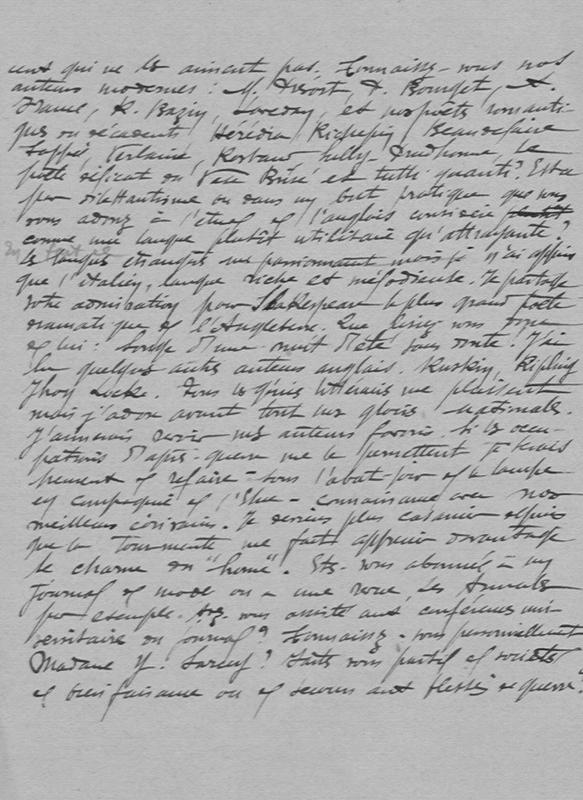 ceux qui ne les aiment pas. Connaissez-vous nos
auteurs modernes : M. Prévost, P. Bourget, A.
France, R. Bazin, Loredan, et nos poètes romanti-
ques ou décadents Hérédia Richepin Beaudelaire
Coppée, Verlaine, Sully-Prudhomme, le
poète délicat du Vase Brisé et tutti quanti? Est-ce
par dilettantisme ou dans un but pratique que vous
vous adonnez à l'étude de l'anglais considéré
comme une langue plutôt utilitaire qu'attrayante?
les langues étrangères me passionnaient mais je n'ai appris
que l'italien, langue riche et mélodieuse. Je partage
votre admiration pour Shakespeare le plus grand poète
dramatique de l'Angleterre. Que lisez vous
de lui : Songe d'une nuit d'été sans doute? J'ai
lu quelques autres auteurs anglais. Ruskin, Kipling
Locke. Tous les génies littéraires me plaisent
mais j'adore avant tout nos gloires nationales.
J'aimerais revoir mes auteurs favoris si les occu-
pations d'après-guerre me le permettent
et refaire - sous l'abat-jour de la lampe
en compagnie de l'Élue - connaissance avec nos
meilleurs écrivains. Je deviens plus casanier depuis
que la tourmente me fait apprécier davantage
le charme du "home". Êtes-vous abonnée à un
journal de mode ou à une revue, les Annales
par exemple. Avez-vous assisté aux conférences uni-
versitaire du journal? Connaissez-vous personnellement
Madame Y. Sarcey? Faites vous partie de sociétés
de bienfaisance ou de secours aux blessés de guerre?